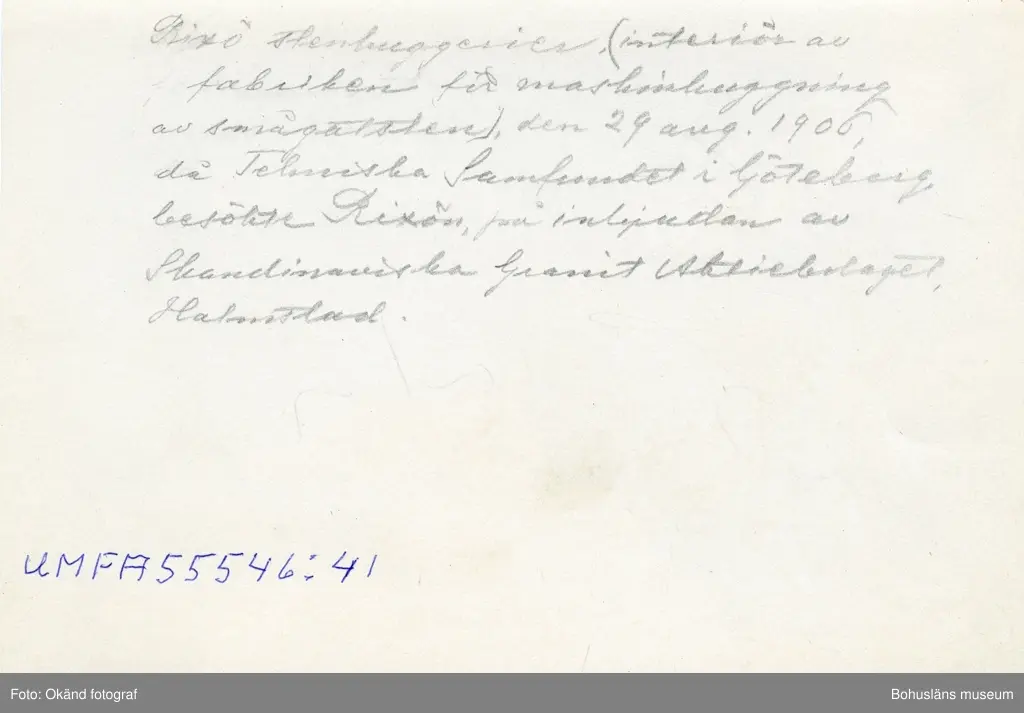 Rixö stenhuggerier, (interiör av
fabriken för maskinhuggning
av smågatsten), den 29 aug. 1906,
då Tekniska Samfundet i Göteborg,
besökte Rixön, på inbjudan av
Skandinaviska Granit Aktiebolaget,
Halmstad.
UMFA55546:41
Foto: Okänd fotograf
Bohusläns museum